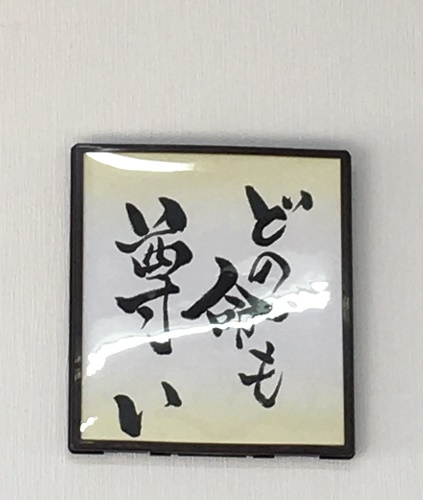 どの命も
尊い